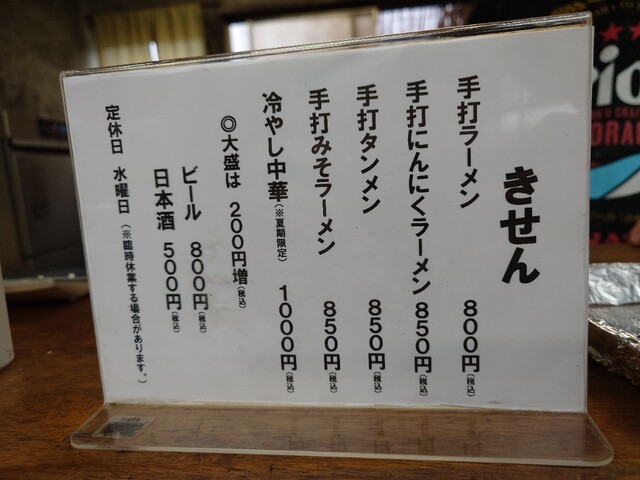 きせん
手打ラーメン 800円(税込)
手打にんにくラーメン 850円(税込)
手打タンメン 850円(税込)
手打みそラーメン 850円(税込)
冷やし中華(※夏期限定) 1000円(税込)
◎大盛は 200円増(税込)
ビール 800円(税込)
日本酒 500円(税込)
定休日 水曜日(※臨時休業する場合があります。)